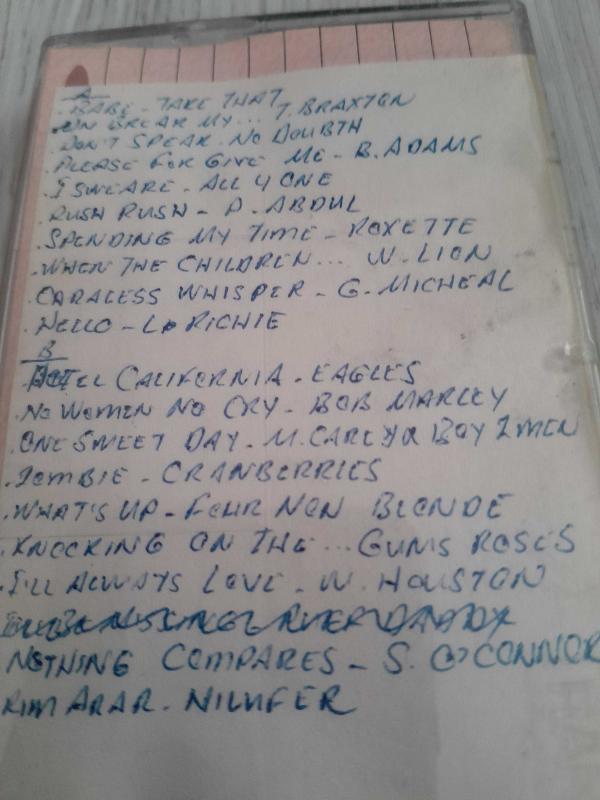 A
. BABE - TAKE THAT
. UN BREAK MY... T. BRAXTON
. DON'T SPEAK. NO DOUBTH
. PLEASE FOR GIVE ME - B. ADAMS
. I SWEARE - ALL 4 ONE
. RUSH RUSH - P. ABDUL
. SPENDING MY TIME - ROXETTE
. WHEN THE CHILDREN... W. LION
. CARALESS WHISPER - G. MICHEAL
. HELLO - L. RICHIE
B
. HOTEL CALIFORNIA - EAGLES
. NO WOMEN NO CRY - BOB MARLEY
. ONE SWEET DAY - M. CAREY & BOY 2 MEN
. ZOMBIE - CRANBERRIES
. WHAT'S UP - FOUR NON BLONDE
. KNOCKING ON THE... GUNS ROSES
. I'LL ALWAYS LOVE - W. HOUSTON
NOTHING COMPARES - S. O'CONNOR
KIM ARAR - NILUFER